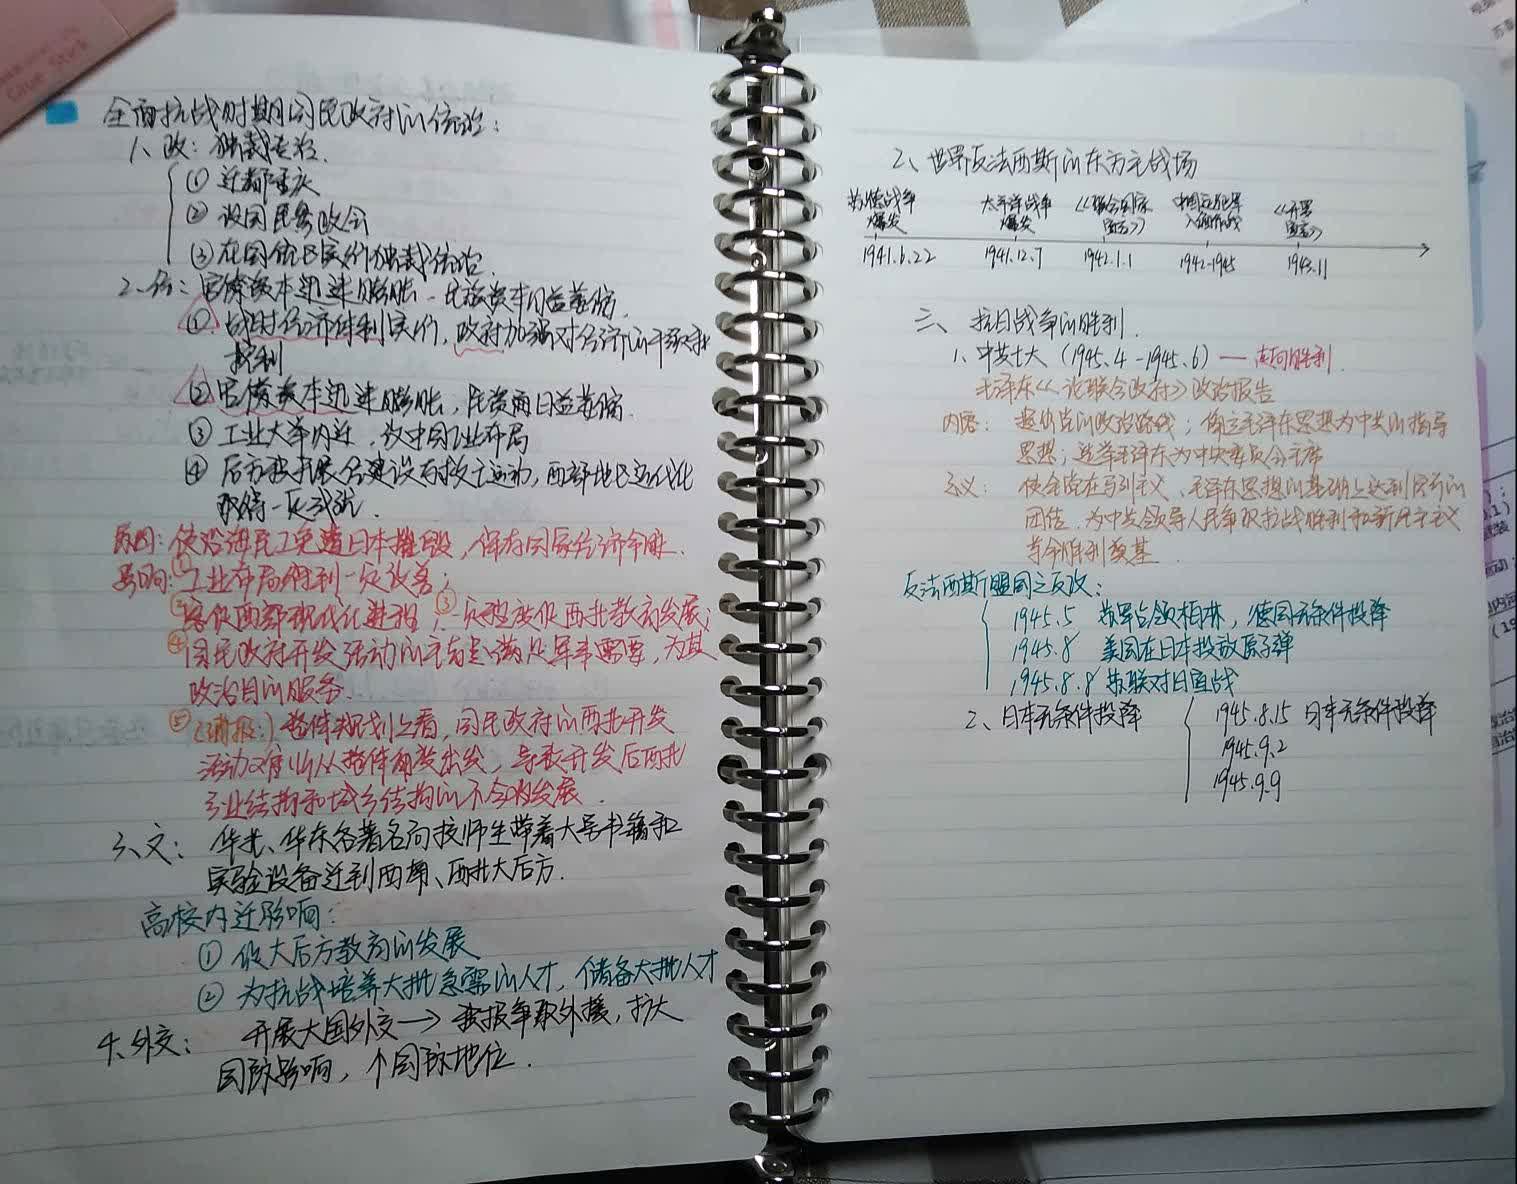 全面抗战时期国民政府的统治：
1、政：独裁专治.
① 迁都重庆
② 设国民参政会
③ 在国统区实行独裁统治.
2、经：官僚资本迅速膨胀 - 民族资本日益萎缩.
① 战时经济体制实行，政府加强对经济的干预和
控制
② 官僚资本迅速膨胀，民资而日益萎缩.
③ 工业大举内迁，改中国工业布局
④ 后方被开展经建设与救亡运动，西部地区近代化
取得一定成就.
原因：使沿海民工免遭日本摧毁，保存国家经济命脉.
影响：①工业布局得到一定改善；
②客促西部现代化进程；③一定程度促西北教育发展；
④国民政府开发活动的主旨是满足军事需要，为其
政治目的服务.
⑤ 整体规划上看，国民政府的西北开发
活动没有从整体角度出发，导致开发后西北
产业结构和城乡结构的不合的发展.
3、文：华北、华东各著名高校师生带着大量书籍和
实验设备迁到西南、西北大后方.
高校内迁影响：
① 促大后方教育的发展
② 为抗战培养大批急需的人才，储备大批人才
4、外交：开展大国外交→ 争取外援，扩大
国际影响，个国际地位.
2、世界反法西斯的东方主战场
苏德战争
爆发
太平洋战争
爆发
《联合国家
宣言》
中国远征军
入缅作战
《开罗
宣言》
1941.6.22 1941.12.7 1942.1.1 1942-1945 1943.11
三、抗日战争的胜利.
1、中共七大（1945.4-1945.6）— 走向胜利.
毛泽东《论联合政府》政治报告
内容：提价党的政治路线；确立毛泽东思想为中共的指导
思想；选举毛泽东为中央委员会主席
意义：使全党在马列主义、毛泽东思想的基础上达到空前的
团结，为中共领导人民争取抗战胜利和新民主主义
革命胜利奠基.
反法西斯盟国之反攻：
1945.5 苏军占领柏林，德国无条件投降
1945.8 美国在日本投放原子弹
1945.8.8 苏联对日宣战
2、日本无条件投降
1945.8.15 日本无条件投降
1945.9.2
1945.9.9
Glue Stick